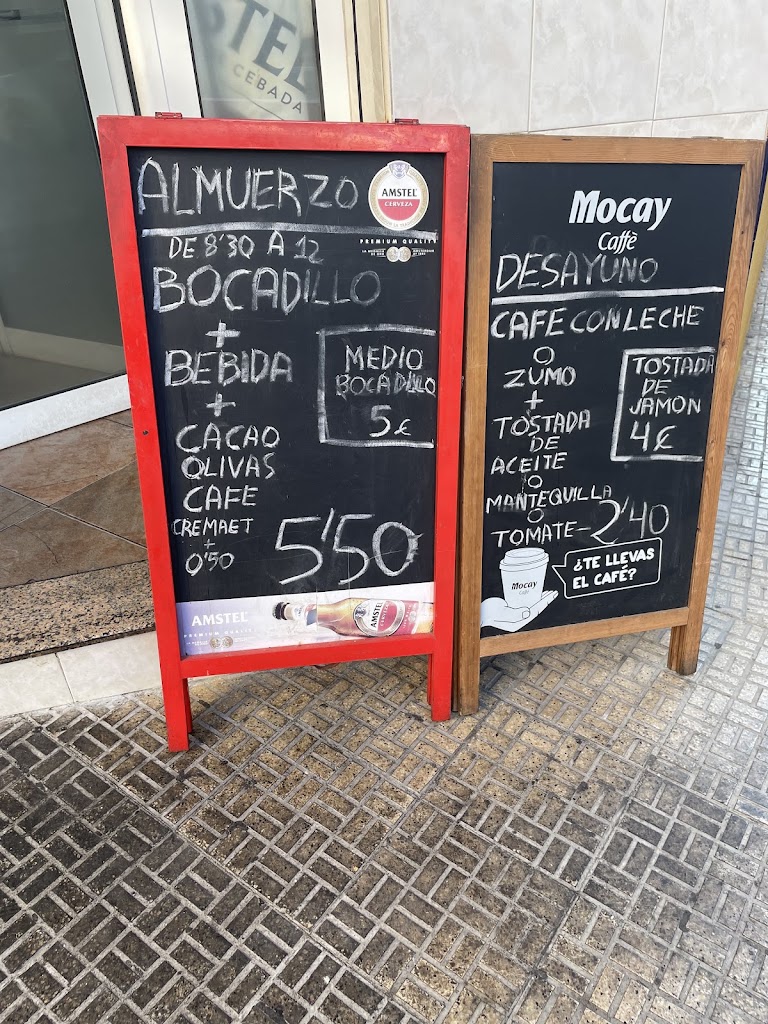 STEL
CEBADA
ALMUERZO
AMSTEL
CERVEZA
PREMIUM QUALITY
DE 8'30 A 12
BOCADILLO
+
BEBIDA
+
CACAO
OLIVAS
CAFE
CREMAET
+
0'50
MEDIO
BOCADILLO
5€
5'50
AMSTEL
PREMIUM QUALITY
AMSTEL
Mocay
Caffè
DESAYUNO
CAFE CON LECHE
O
ZUMO
+
TOSTADA
DE
ACEITE
O
MANTEQUILLA
O
TOMATE-2'40
TOSTADA
DE
JAMON
4€
Mocay
Caffè
¿TE LLEVAS
EL CAFÉ?